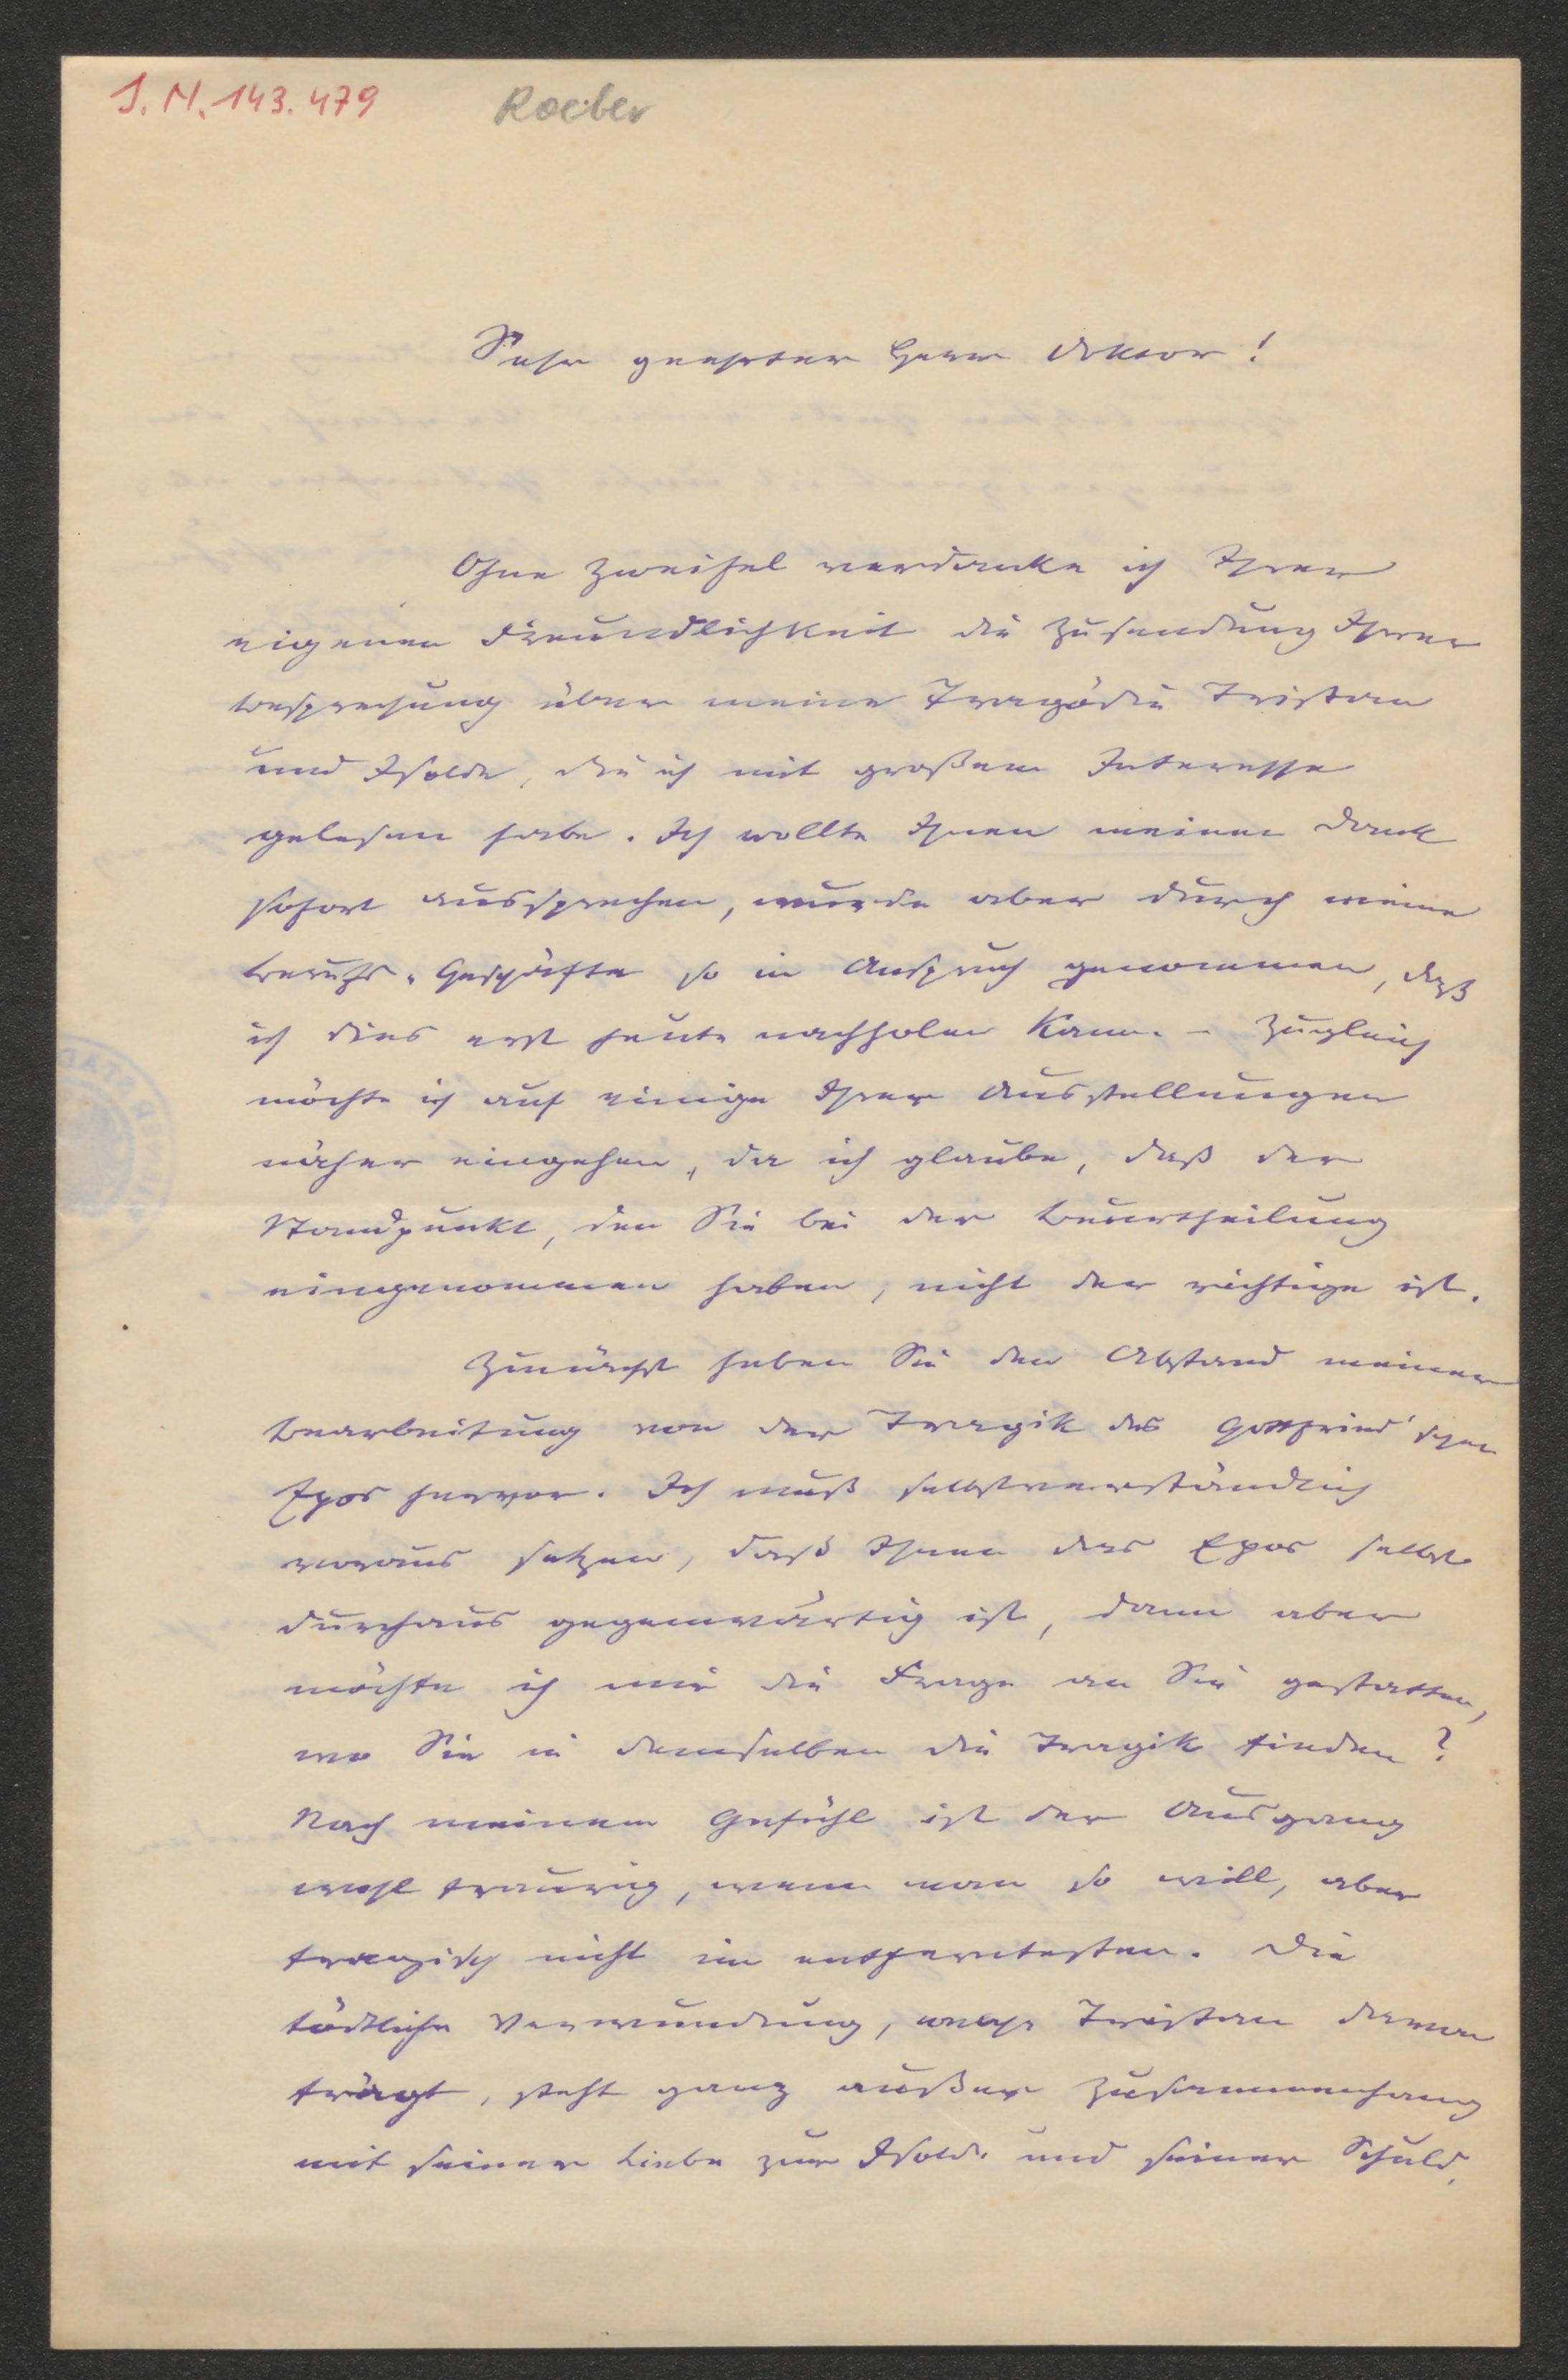 I. N. 143.479 Roeber
Sehr geehrter Herr Doktor!
Ohne Zweifel verdanke ich Ihrer
eigenen Freundlichkeit die Zusendung Ihrer
Besprechung über meine Tragödie Tristan
und Isolde, die ich mit großem Interesse
gelesen habe. Ich wollte Ihnen meinen Dank
sofort aussprechen, wurde aber durch meine
Berufs-Geschäfte so in Anspruch genommen, daß
ich dies erst heute nachholen kann. – Zugleich
möchte ich auf einige Ihrer Ausstellungen
näher eingehen, da ich glaube, daß der
Standpunkt, den Sie bei der Beurtheilung
eingenommen haben, nicht der richtige ist.
Zunächst heben Sie den Abstand meiner
Bearbeitung von der Tragik des Gottfried'schen
Epos hervor. Ich muß selbstverständlich
voraus setzen, daß Ihnen das Epos selbst
durchaus gegenwärtig ist, dann aber
möchte ich mir die Frage an Sie gestatten,
wo Sie in demselben die Tragik finden?
Nach meinem Gefühl ist der Ausgang
wohl traurig, wenn man so will, aber
tragisch nicht im entferntesten. Die
tödtliche Verwundung, welche Tristan davon
trägt, steht ganz außer Zusammenhang
mit seiner Liebe zur Isolde und seiner Schuld,